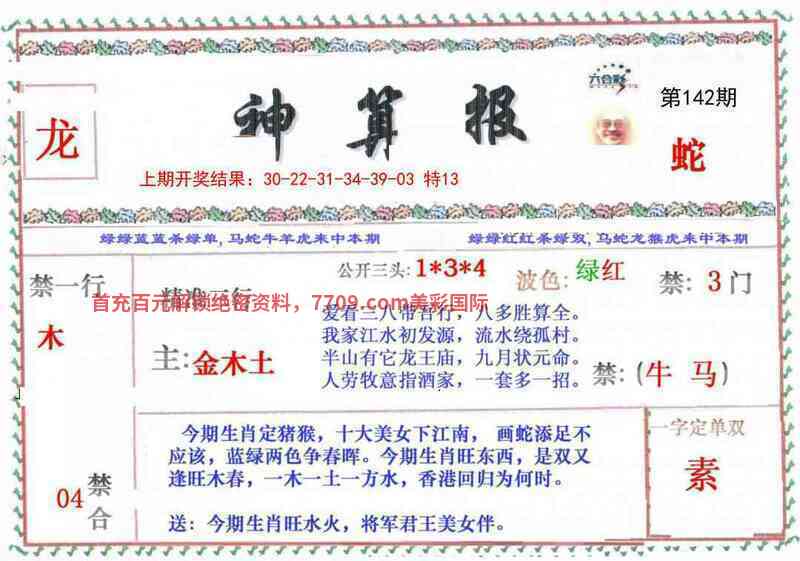 六合彩
第142期
龙
神算报
蛇
上期开奖结果：30-22-31-34-39-03 特13
绿绿蓝蓝杀绿单, 马蛇牛羊虎来中本期
绿绿红红杀绿双, 马蛇龙猴虎来中本期
禁一行
木
公开三头: 1*3*4
波色: 绿红
禁: 3门
首充百元解锁绝密资料，7709.com美彩国际
主: 金木土
我家江水初发源，流水绕孤村。
半山有它龙王庙，九月状元命。
人劳牧意指酒家，一套多一招。
禁: (牛 马)
今期生肖定猪猴，十大美女下江南， 画蛇添足不
应该，蓝绿两色争春晖。今期生肖旺东西，是双又
逢旺木春，一木一土一方水，香港回归为何时。
送: 今期生肖旺水火，将军君王美女伴。
一字定单双
素
04
禁合